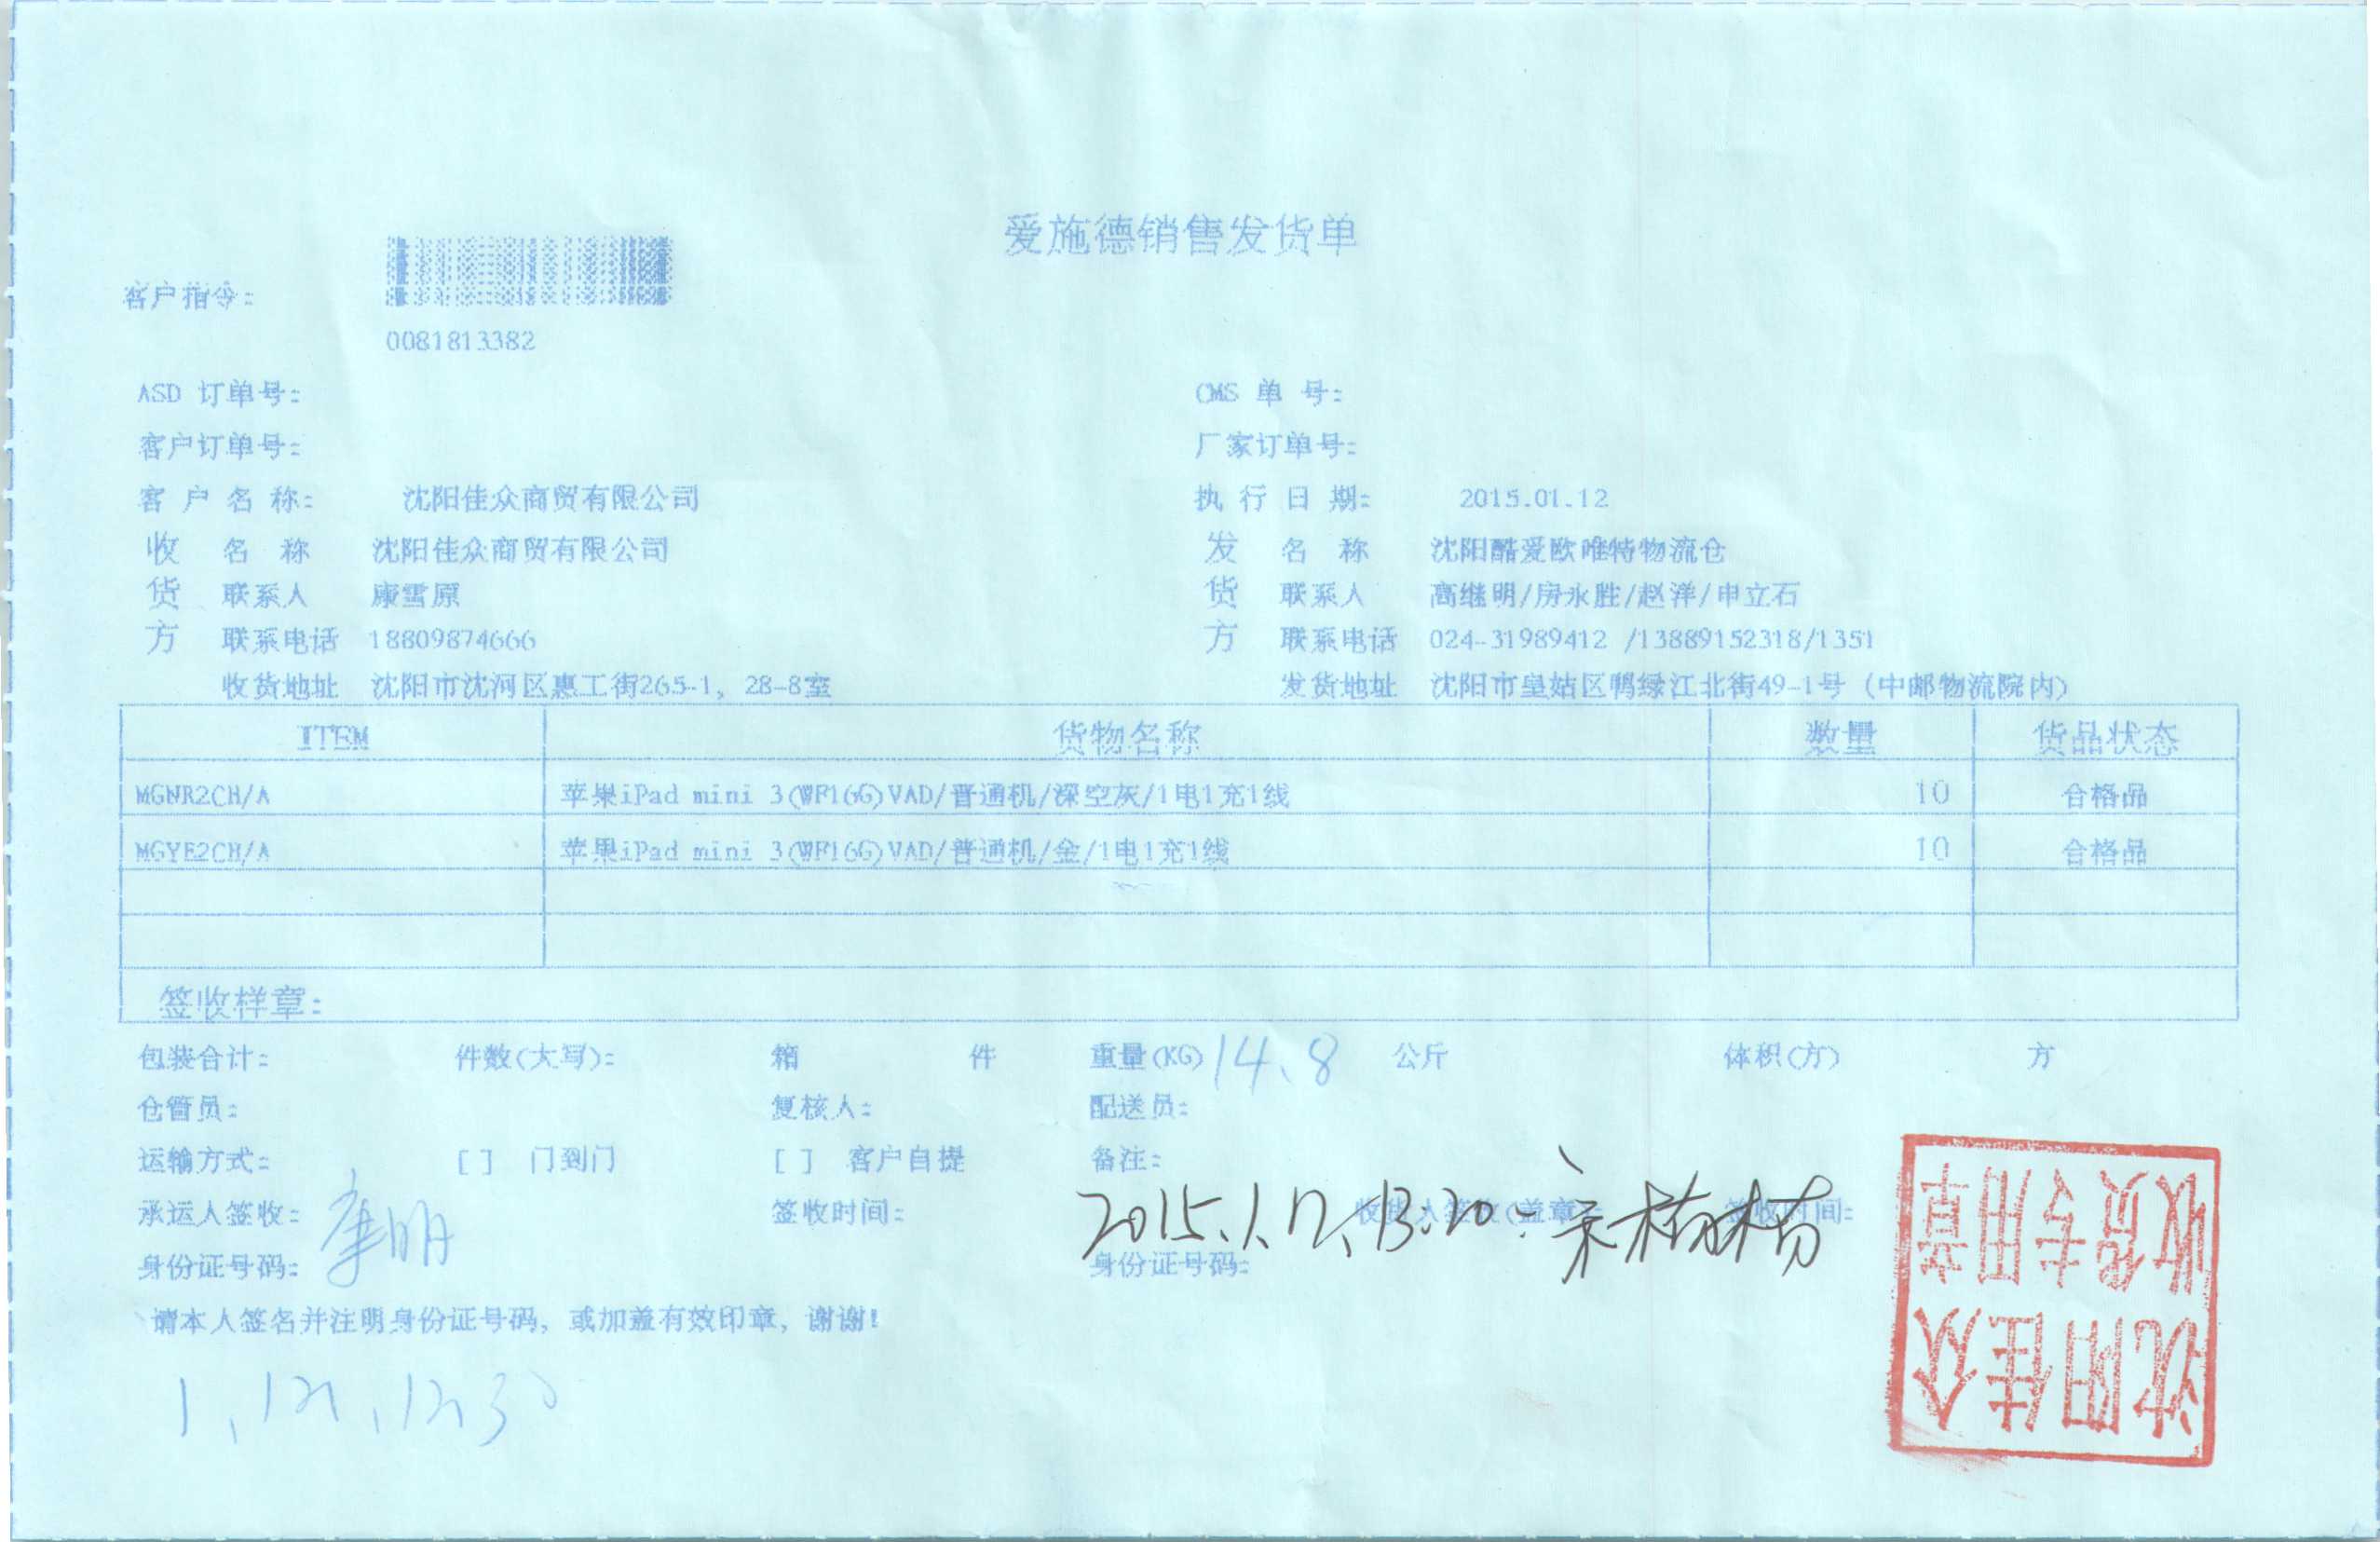 爱施德销售发货单
客户指令：
0081813382
ASD 订单号： CMS 单 号：
客户订单号： 厂家订单号：
客 户 名 称： 沈阳佳众商贸有限公司 执 行 日 期： 2015.01.12
收 名 称 沈阳佳众商贸有限公司 发 名 称 沈阳酷爱欧唯特物流仓
货 联系人 康雪原 货 联系人 高继明/房永胜/赵洋/申立石
方 联系电话 18809874666 方 联系电话 024-31989412 /13889152318/1351
收货地址 沈阳市沈河区惠工街265-1, 28-8室 发货地址 沈阳市皇姑区鸭绿江北街49-1号 (中邮物流院内)
ITEM 货物名称 数量 货品状态
MGNR2CH/A 苹果iPad mini 3(WF16G)VAD/普通机/深空灰/1电1充1线 10 合格品
MGYE2CH/A 苹果iPad mini 3(WF16G)VAD/普通机/金/1电1充1线 10 合格品
签收样章：
包装合计： 件数(大写)： 箱 件 重量(KG) 14.8 公斤 体积(方) 方
仓管员： 复核人： 配送员：
运输方式： [ ] 门到门 [ ] 客户自提 备注：
承运人签收： 签收时间： 2015.1.12, 13:20 收货人签收(盖章) 签收时间：
身份证号码： 身份证号码：
请本人签名并注明身份证号码, 或加盖有效印章, 谢谢!
沈阳佳众
收货专用章